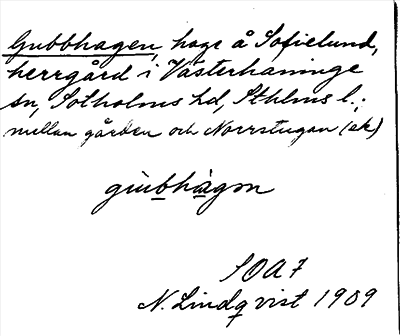 Gubbhagen, hage å Sofielund,
herrgård i Västerhaninge
sn, Sotholms hd, Sthlms l.;
mellan gården och Norrstugan (ek)
gùbhàgən
SOA 7
N. Lindqvist 1909